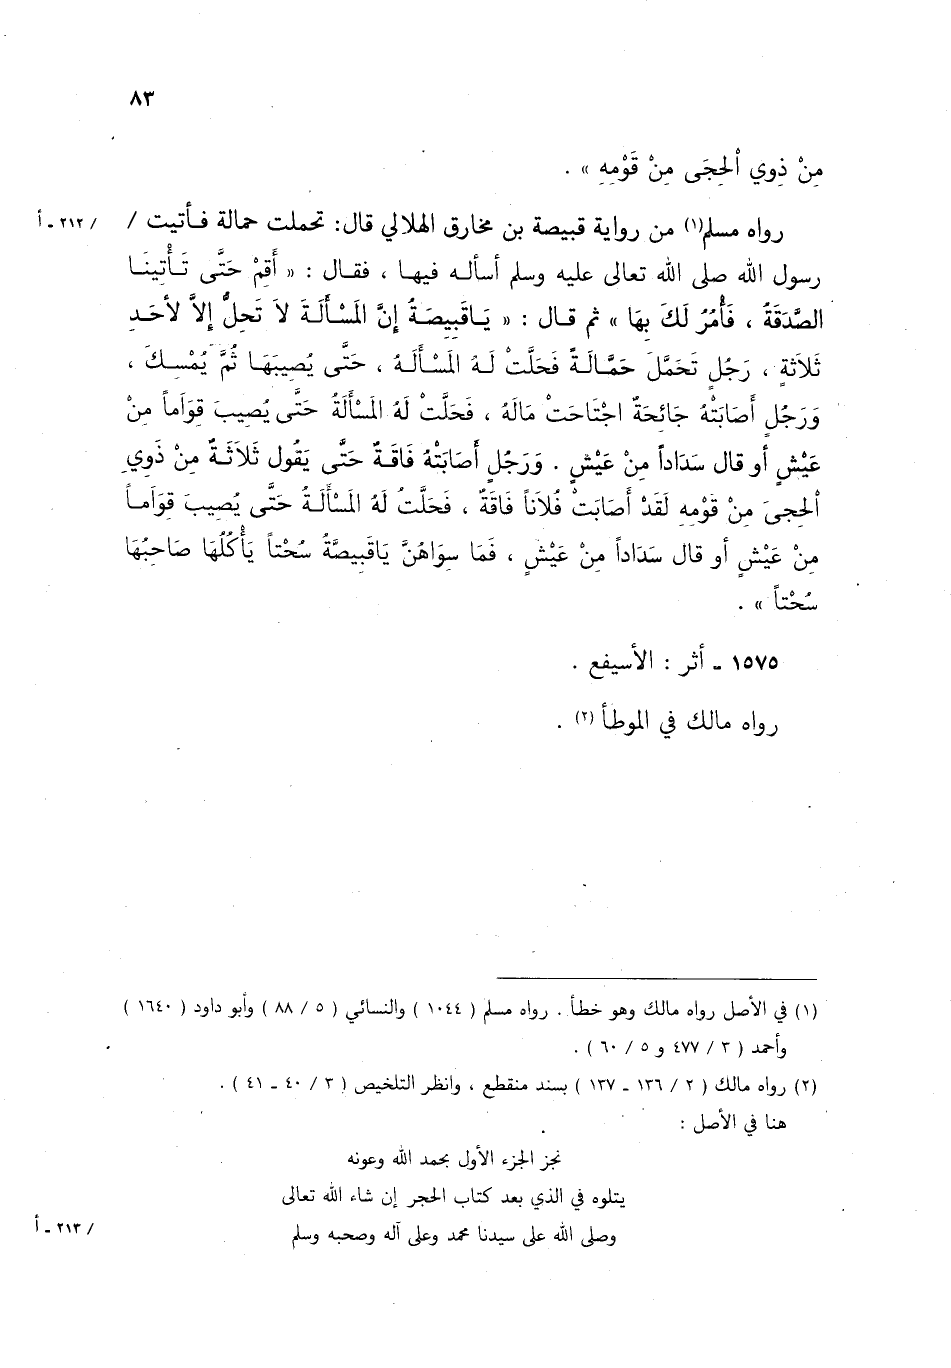 ٨٣
مِنْ ذوِي ٱلحِجَى مِنْ قَوْمِهِ » .
رواه مسلم(١) من رواية قبيصة بن مخارق الهلالي قال: تحملت حمالة فـأتيت /
/ ٢١٢ ـ أ
رسول الله صلى الله تعالى عليه وسلم أسألـه فيهـا ، فقـال : « أَقِمْ حَتَّى تَـأْتِيَنَـا
الصَّدَقَةُ ، فَأْمُرُ لَكَ بِهَا » ثم قـال : « يَـاقَبِيصَـةُ إِنَّ المَسْأَلَـةَ لاَ تَحِلُّ إِلاَّ لأَحَـدِ
ثَلاَثةٍ ، رَجُلٍ تَحَمَّلَ حَمَّـالَـةً فَحَلَّتْ لَـهُ المَسْـأَلَـهُ ، حَتَّى يُصِيبَهَـا ثُمَّ يُمْسِـكَ ،
وَرَجُلٍ أَصَابَتْهُ جَائِحَةٌ اجْتَاحَتْ مَالَهُ ، فَحَلَّتْ لَهُ المَسْأَلَةُ حَتَّى يُصِيبَ قِوَاماً مِنْ
عَيْشٍ أو قال سَدَاداً مِنْ عَيْشٍ . وَرَجُلٍ أَصَابَتْهُ فَاقَـةٌ حَتَّى يَقُولَ ثَلاَثَـةٌ مِنْ ذَوِي
ٱلحِجىَ مِنْ قَوْمِهِ لَقَدْ أَصَابَتْ فُلاَناً فَاقَةٌ ، فَحَلَّتُ لَهُ المَسْأَلَـةُ حَتَّى يُصِيبَ قِوَامـاً
مِنْ عَيْشٍ أو قال سَدَاداً مِنْ عَيْشٍ ، فَمَا سِوَاهُنَّ يَاقَبِيصَّةُ سُحْتاً يَأْكُلُهَا صَاحِبُهَا
سُحْتاً » .
١٥٧٥ ـ أثر : الأسيفع .
رواه مالك في الموطأ (٢) .
(١) في الأصل رواه مالك وهو خطأ . رواه مسلم ( ١٠٤٤ ) والنسائي ( ٥ / ٨٨ ) وأبو داود ( ١٦٤٠ )
وأحمد ( ٣ / ٤٧٧ و ٥ / ٦٠ ) .
(٢) رواه مالك ( ٢ / ١٣٦ ـ ١٣٧ ) بسند منقطع ، وانظر التلخيص ( ٣ / ٤٠ ـ ٤١ ) .
هنا في الأصل :
نجز الجزء الأول بحمد الله وعونه
يتلوه في الذي بعد كتاب الحجر إن شاء الله تعالى
وصلى الله على سيدنا محمد وعلى آله وصحبه وسلم
/ ٢١٣ ـ أ